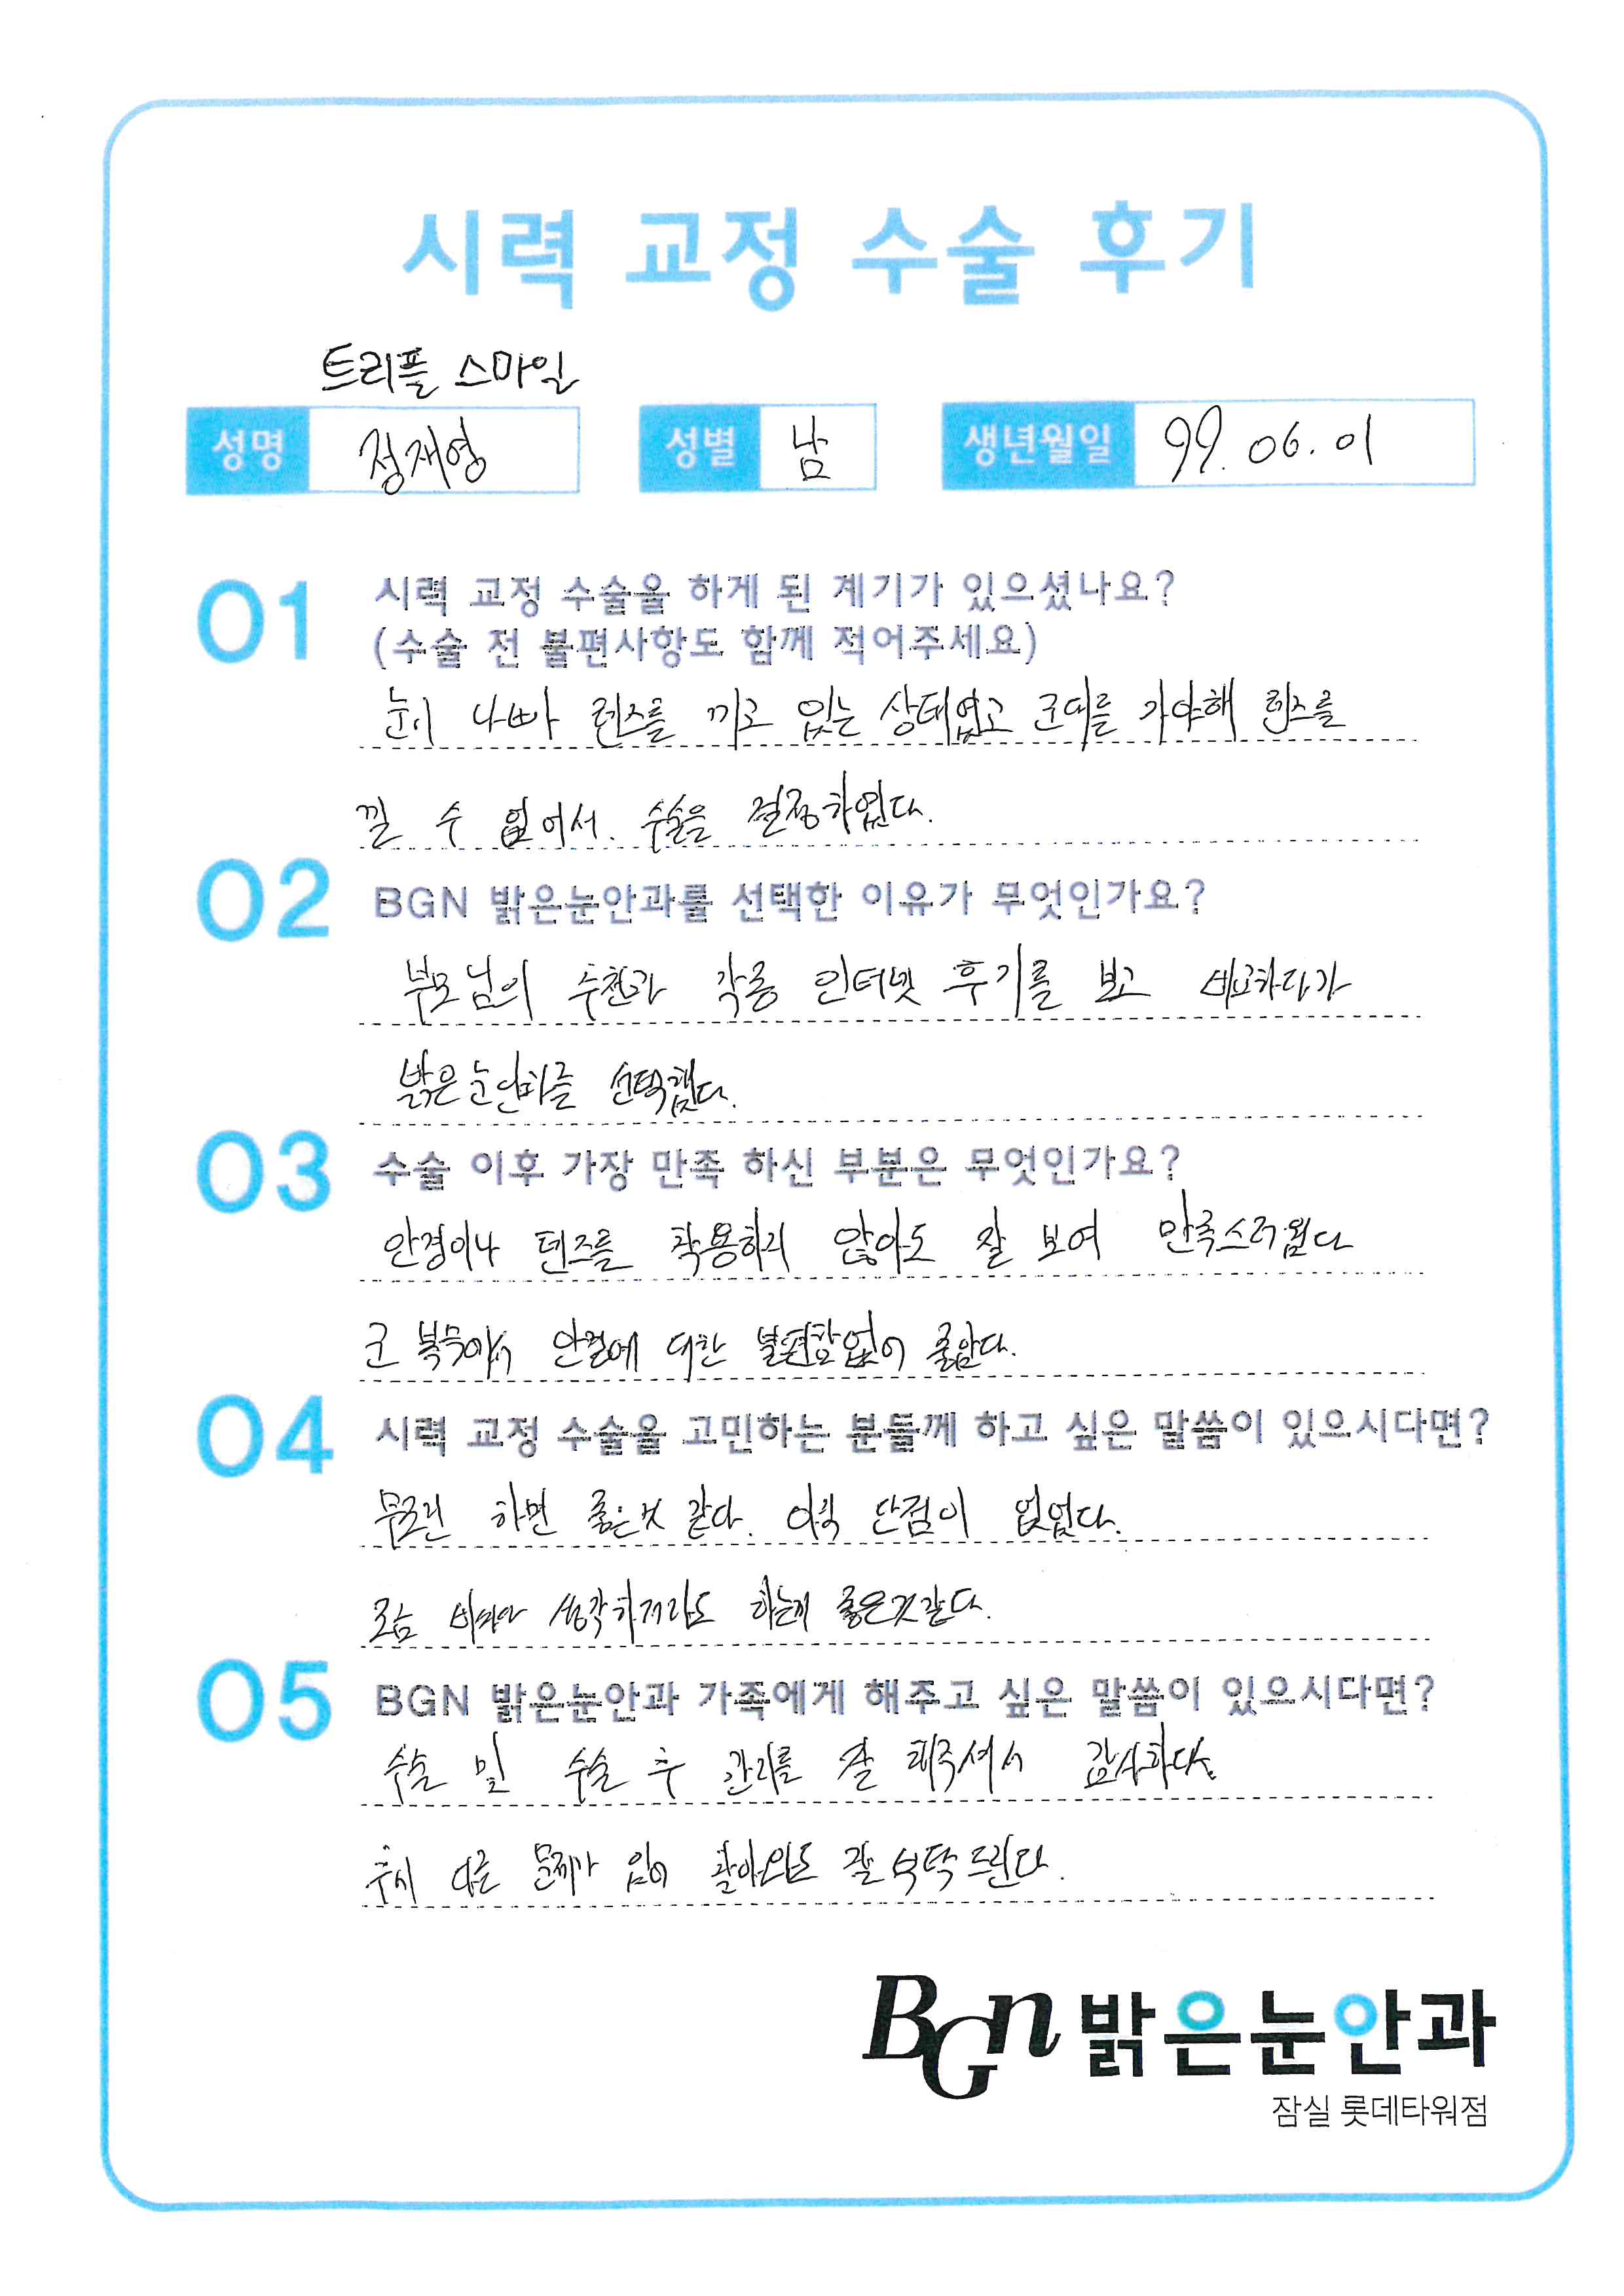 시력 교정 수술 후기
트리플 스마일
성명 정재영 성별 남 생년월일 99. 06. 01
01 시력 교정 수술을 하게 된 계기가 있으셨나요?
(수술 전 불편사항도 함께 적어주세요)
눈이 나빠 렌즈를 끼고 있는 상태였고 군대를 가야해 렌즈를
낄 수 없어서. 수술을 결정하였다.
02 BGN 밝은눈안과를 선택한 이유가 무엇인가요?
부모님의 추천과 각종 인터넷 후기를 보고 비교하다가
밝은눈안과를 선택했다.
03 수술 이후 가장 만족 하신 부분은 무엇인가요?
안경이나 렌즈를 착용하지 않아도 잘 보여 만족스러웠다
군 복무에서 안경에 대한 불편함없이 좋았다.
04 시력 교정 수술을 고민하는 분들께 하고 싶은 말씀이 있으시다면?
무조건 하면 좋은것 같다. 단점이 없었다.
조금 생각하더라도 하는게 좋은것같다.
05 BGN 밝은눈안과 가족에게 해주고 싶은 말씀이 있으시다면?
수술 및 수술 후 관리를 잘 해주셔서 감사하다.
추후 다른 문제가 있어 찾아와도 잘 부탁드린다.
BGn 밝은눈안과
잠실 롯데타워점